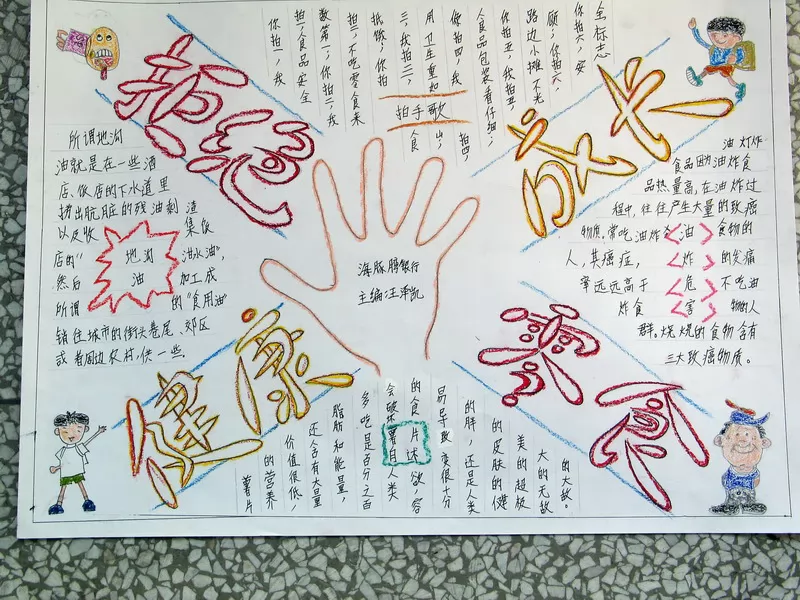 拒绝
零食
健康
成长
拍手歌
你拍一,我
拍一,食品安全
数第一;你拍二,我
拍二,不吃零食来
抵饿;你拍
三,我拍三,
用卫生重如
山;
你拍四,我
拍四,
食品包装看仔细;
你拍五,我拍五,
路边小摊不光
顾;你拍六,
你拍六,安
全标志
所谓地沟
油就是在一些酒
店、饭店的下水道里
捞出肮脏的残油剩渣
以及收集饭
店的“泔水油”,
然后加工成
所谓的“食用油”
销往城市的街头巷尾、郊区
或者周边农村,供一些
地沟
油
海豚腾银行
主编:汪泽凯
油炸
食品因油炸食
品热量高,在油炸过
程中,往往产生大量的致癌
物质。常吃油炸食物的
人,其癌症,的发病
率远远高于不吃油
炸食物的人
群。烧烤的食物含有
三大致癌物质。
油
炸
危
害
薯片
的营养
价值很低,
还含有大量
脂肪和能量,
多吃是百分之百
会破
的食欲,容
易导致
的胖,还是人类
的皮肤的
美的超极
大的无敌
的大敌。
薯片
自述